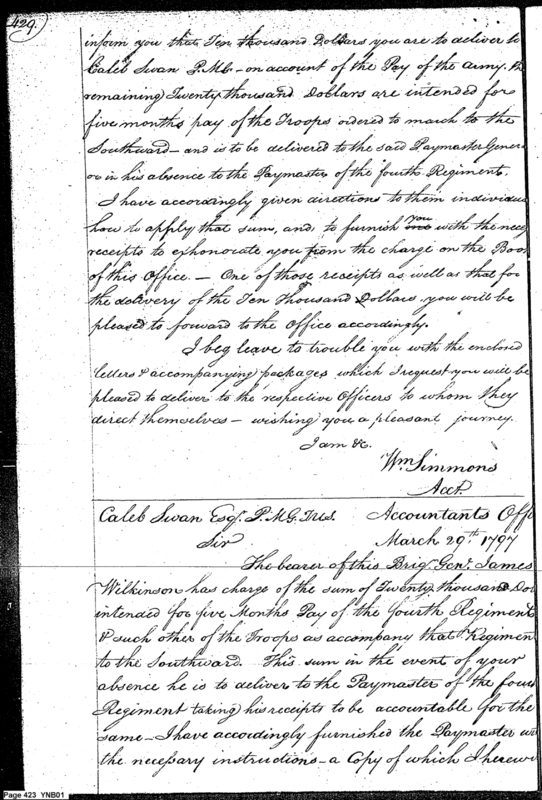 429.
inform you that Ten thousand Dollars you are to deliver to
Caleb Swan P.M.G. – on account of the Pay of the Army. the
remaining Twenty thousand Dollars are intended for
five months pay of the Troops ordered to march to the
Southward – and is to be delivered to the said Paymaster Gener
or in his absence to the Paymaster of the fourth Regiment.
I have accordingly given directions to them individua
how to apply that sum, and, to furnish you with the nec
receipts to exhonorate you from the charge on the Boo
of this Office. – One of those receipts as well as that for
the delivery of the Ten Thousand Dollars, you will be
pleased to forward to the Office accordingly.
I beg leave to trouble you with the enclosed
letters & accompanying packages which I request you will be
pleased to deliver to the respective Officers to whom they
direct themselves – wishing you a pleasant journey.
I am &c.
Wm Simmons
Acct.
Caleb Swan Esqr. P.M.G. Accountants Offi
Sir March 29th 1797
The bearer of this Brigr. Genl. James
Wilkinson has charge of the sum of Twenty thousand Dol
intended for five Months Pay of the fourth Regiment
& such other of the Troops as accompany that Regimen
to the Southward. This sum in the event of your
absence he is to deliver to the Paymaster of the four
Regiment taking his receipts to be accountable for the
same – I have accordingly furnished the Paymaster wi
the necessary instructions – a Copy of which I herewi
Page 423 YNB01